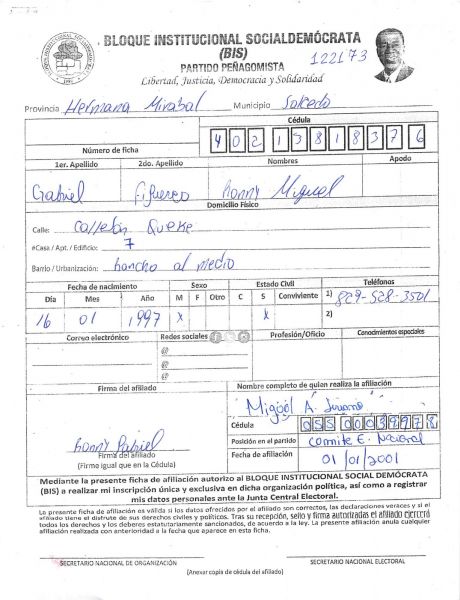 BLOQUE INSTITUCIONAL SOCIALDEMÓCRATA
(BIS)
PARTIDO PEÑAGOMISTA
122173
Libertad, Justicia, Democracia y Solidaridad
Provincia Hermana Mirabal Municipio Salcedo
Cédula
Número de ficha 40213818376
1er. Apellido 2do. Apellido Nombres Apodo
Gabriel Miguel
Domicilio Físico
Calle: Callejón
#Casa / Apt. / Edificio: 7
Barrio / Urbanización: al medio
Fecha de nacimiento Sexo Estado Civil Teléfonos
Día Mes Año M F Otro C S Conviviente 1) 829-528-3501
16 01 1997 X X 2)
Correo electrónico Redes sociales Profesión/Oficio Conocimientos especiales
@
@
@
Firma del afiliado Nombre completo de quien realiza la afiliación
Miguel A.
Cédula
Posición en el partido Comite E. Nacional
Firma del afiliado
(Firma igual que en la Cédula)
Fecha de afiliación 01/01/2001
Mediante la presente ficha de afiliación autorizo al BLOQUE INSTITUCIONAL SOCIAL DEMÓCRATA
(BIS) a realizar mi inscripción única y exclusiva en dicha organización política, así como a registrar
mis datos personales ante la Junta Central Electoral.
La presente ficha de afiliación es válida si los datos ofrecidos por el afiliado son correctos, las declaraciones veraces y si el
afiliado tiene el disfrute de sus derechos civiles y políticos. Tras su recepción, sello y firma autorizadas el afiliado ejercerá
todos los derechos y los deberes estatutariamente sancionados, de acuerdo a la ley. La presente afiliación anula cualquier
afiliación realizada con anterioridad a la fecha que aparece en esta ficha.
SECRETARIO NACIONAL DE ORGANIZACIÓN SECRETARIO NACIONAL ELECTORAL
(Anexar copia de cédula del afiliado)